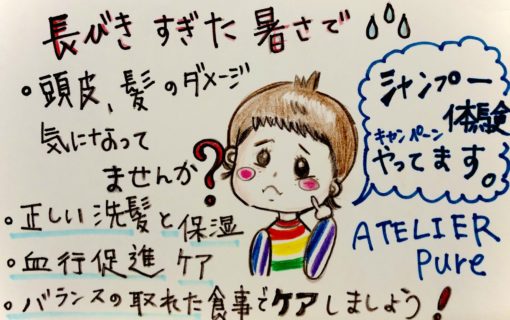 長びきすぎた暑さで
•頭皮、髪のダメージ
気になって
ませんか?
•正しい洗髪と保湿
•血行促進ケア
•バランスの取れた食事でケアしましょう!
シャンプー
体験
キャンペーン
やってます。
ATELIER
Pure